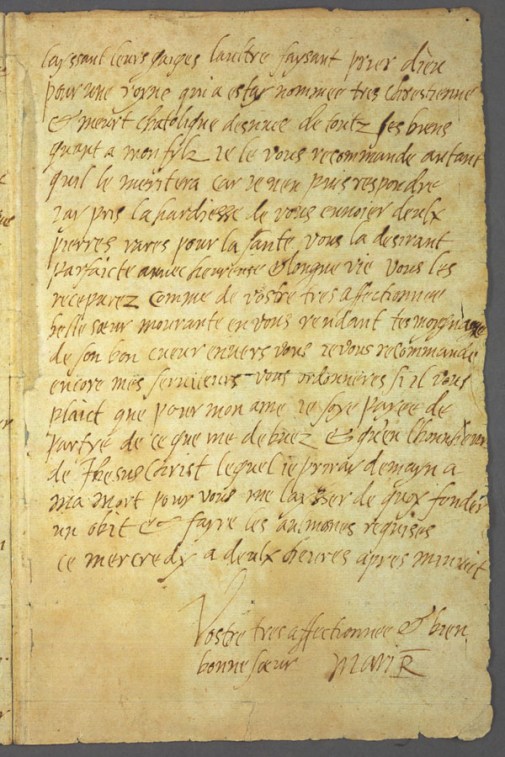 layssant leurs gaiges laultre faysant prier dieu
pour une royne qui a estay nommee tres chrestienne
& meurt chatolique desnuee de toutz ses biens
quant a mon filz ie le vous recommande autant
quil le meritera car ie nen puis respondre
Iay pris la hardiesse de vous enuoier deulx
pierres rares pour la sante vous la desirant
parfaicte auuec heureuse & longue vie vous les
receuvrez comme de vostre tres affectionnee
belle soeur mourante en vous rendant tesmoygnage
de son bon cueur enuers vous ie vous recommande
encore mes seruiteurs vous ordonneres si il vous
plaict que pour mon ame ie soye payee de
partye de ce que me debuez & quen lhonneur
de Ihesus Christ lequel ie priray demayn a
ma mort pour vous me laysser de quoy fonder
un obit & fayre les aumones requises
ce mercredy a deulx heures apres minuit
Vostre tres affectionnee & bien
bonne soeur Mari R